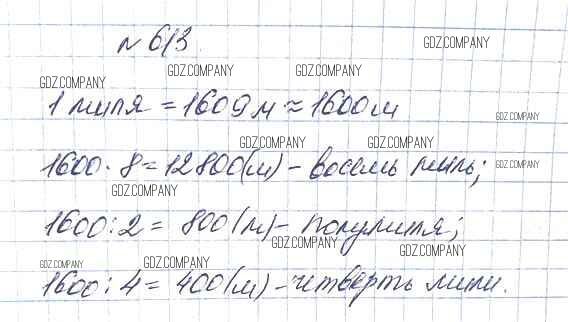 № 613.
GDZ.COMPANY
GDZ.COMPANY GDZ.COMPANY
GDZ.COMPANY
1 миля = 1609 м ≈ 1600 м
GDZ.COMPANY
GDZ.COMPANY GDZ.COMPANY
1600 · 8 = 12800 (м) - восемь миль;
GDZ.COMPANY
GDZ.COMPANY
1600 : 2 = 800 (м) - полумиля;
GDZ.COMPANY GDZ.COMPANY
GDZ.COMPANY GDZ.COMPANY
1600 : 4 = 400 (м) - четверть мили.